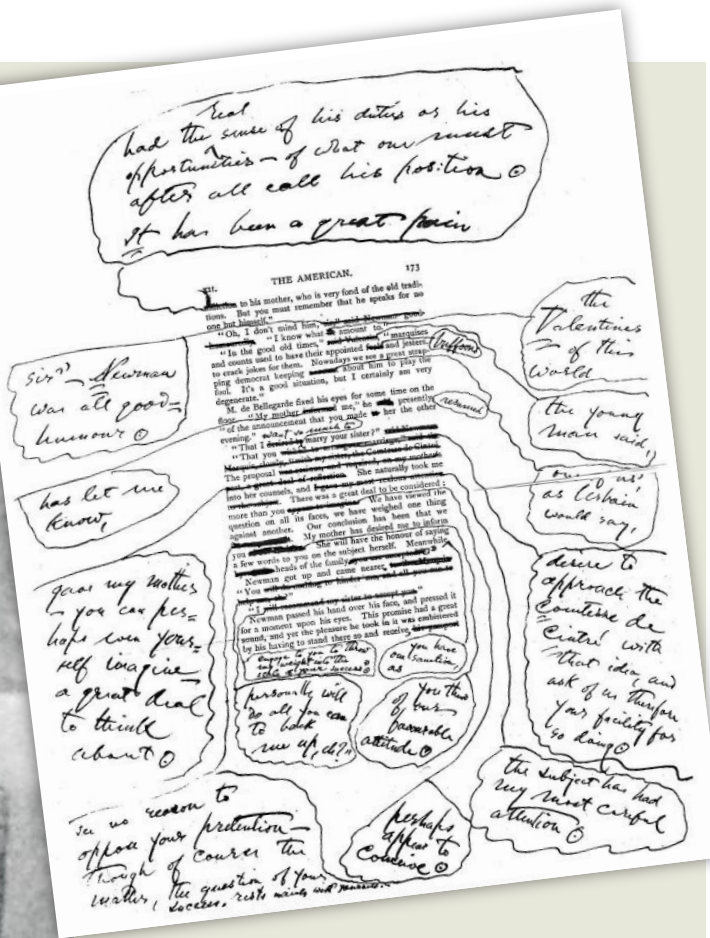 real
had the sense of his duties as his
opportunities – of what one must
after all call his position
It has been a great pain
XII.
THE AMERICAN.
173
to his mother, who is very fond of the old tradi-
tions. But you must remember that he speaks for no
one but himself."
"Oh, I don't mind him,
"I know what amount to,"
"In the good old times," "marquises
and counts used to have their appointed and jesters,
to crack jokes for them. Nowadays we see a great strap-
ping democrat keeping about him to play the
fool. It's a good situation, but I certainly am very
degenerate."
M. de Bellegarde fixed his eyes for some time on the
floor. "My mother me," he presently
"of the announcement that you made to her the other
evening."
"That I marry your sister?"
"That you
The proposal
She naturally took me
into her counsels, and
There was a great deal to be considered;
more than you
We have viewed the
question on all its faces, we have weighed one thing
against another. Our conclusion has been that we
My mother has desired me to inform
you
She will have the honour of saying
a few words to you on the subject herself. Meanwhile
heads of the family
Newman got up and came nearer.
"You
Newman passed his hand over his face, and pressed it
for a moment upon his eyes. This promise had a great
sound, and yet the pleasure he took in it was embittered
by his having to stand there so and receive
buffoons
resumed
sir" – Newman
was all good-
humour
has let me
know,
gave my mother
– you can per-
haps even your-
self imagine –
a great deal
to think
about
see no reason to
oppose your pretention –
though of course the
matter, the question of your
success, rests mainly with yourself.
the
Valentines
of this
world
the young
man said,
as Urbain
would say,
desire to
approach the
Comtesse de
Cintré with
that idea, and
ask of us therefore
your facility for
so doing
the subject has had
my most careful
attention
perhaps
appear to
conceive
engage to you to throw
my weight into the
scale of your success
you have
our sanction,
as
personally will
do all you can
to back
me up, eh?"
you think
of our
favourable
attitude